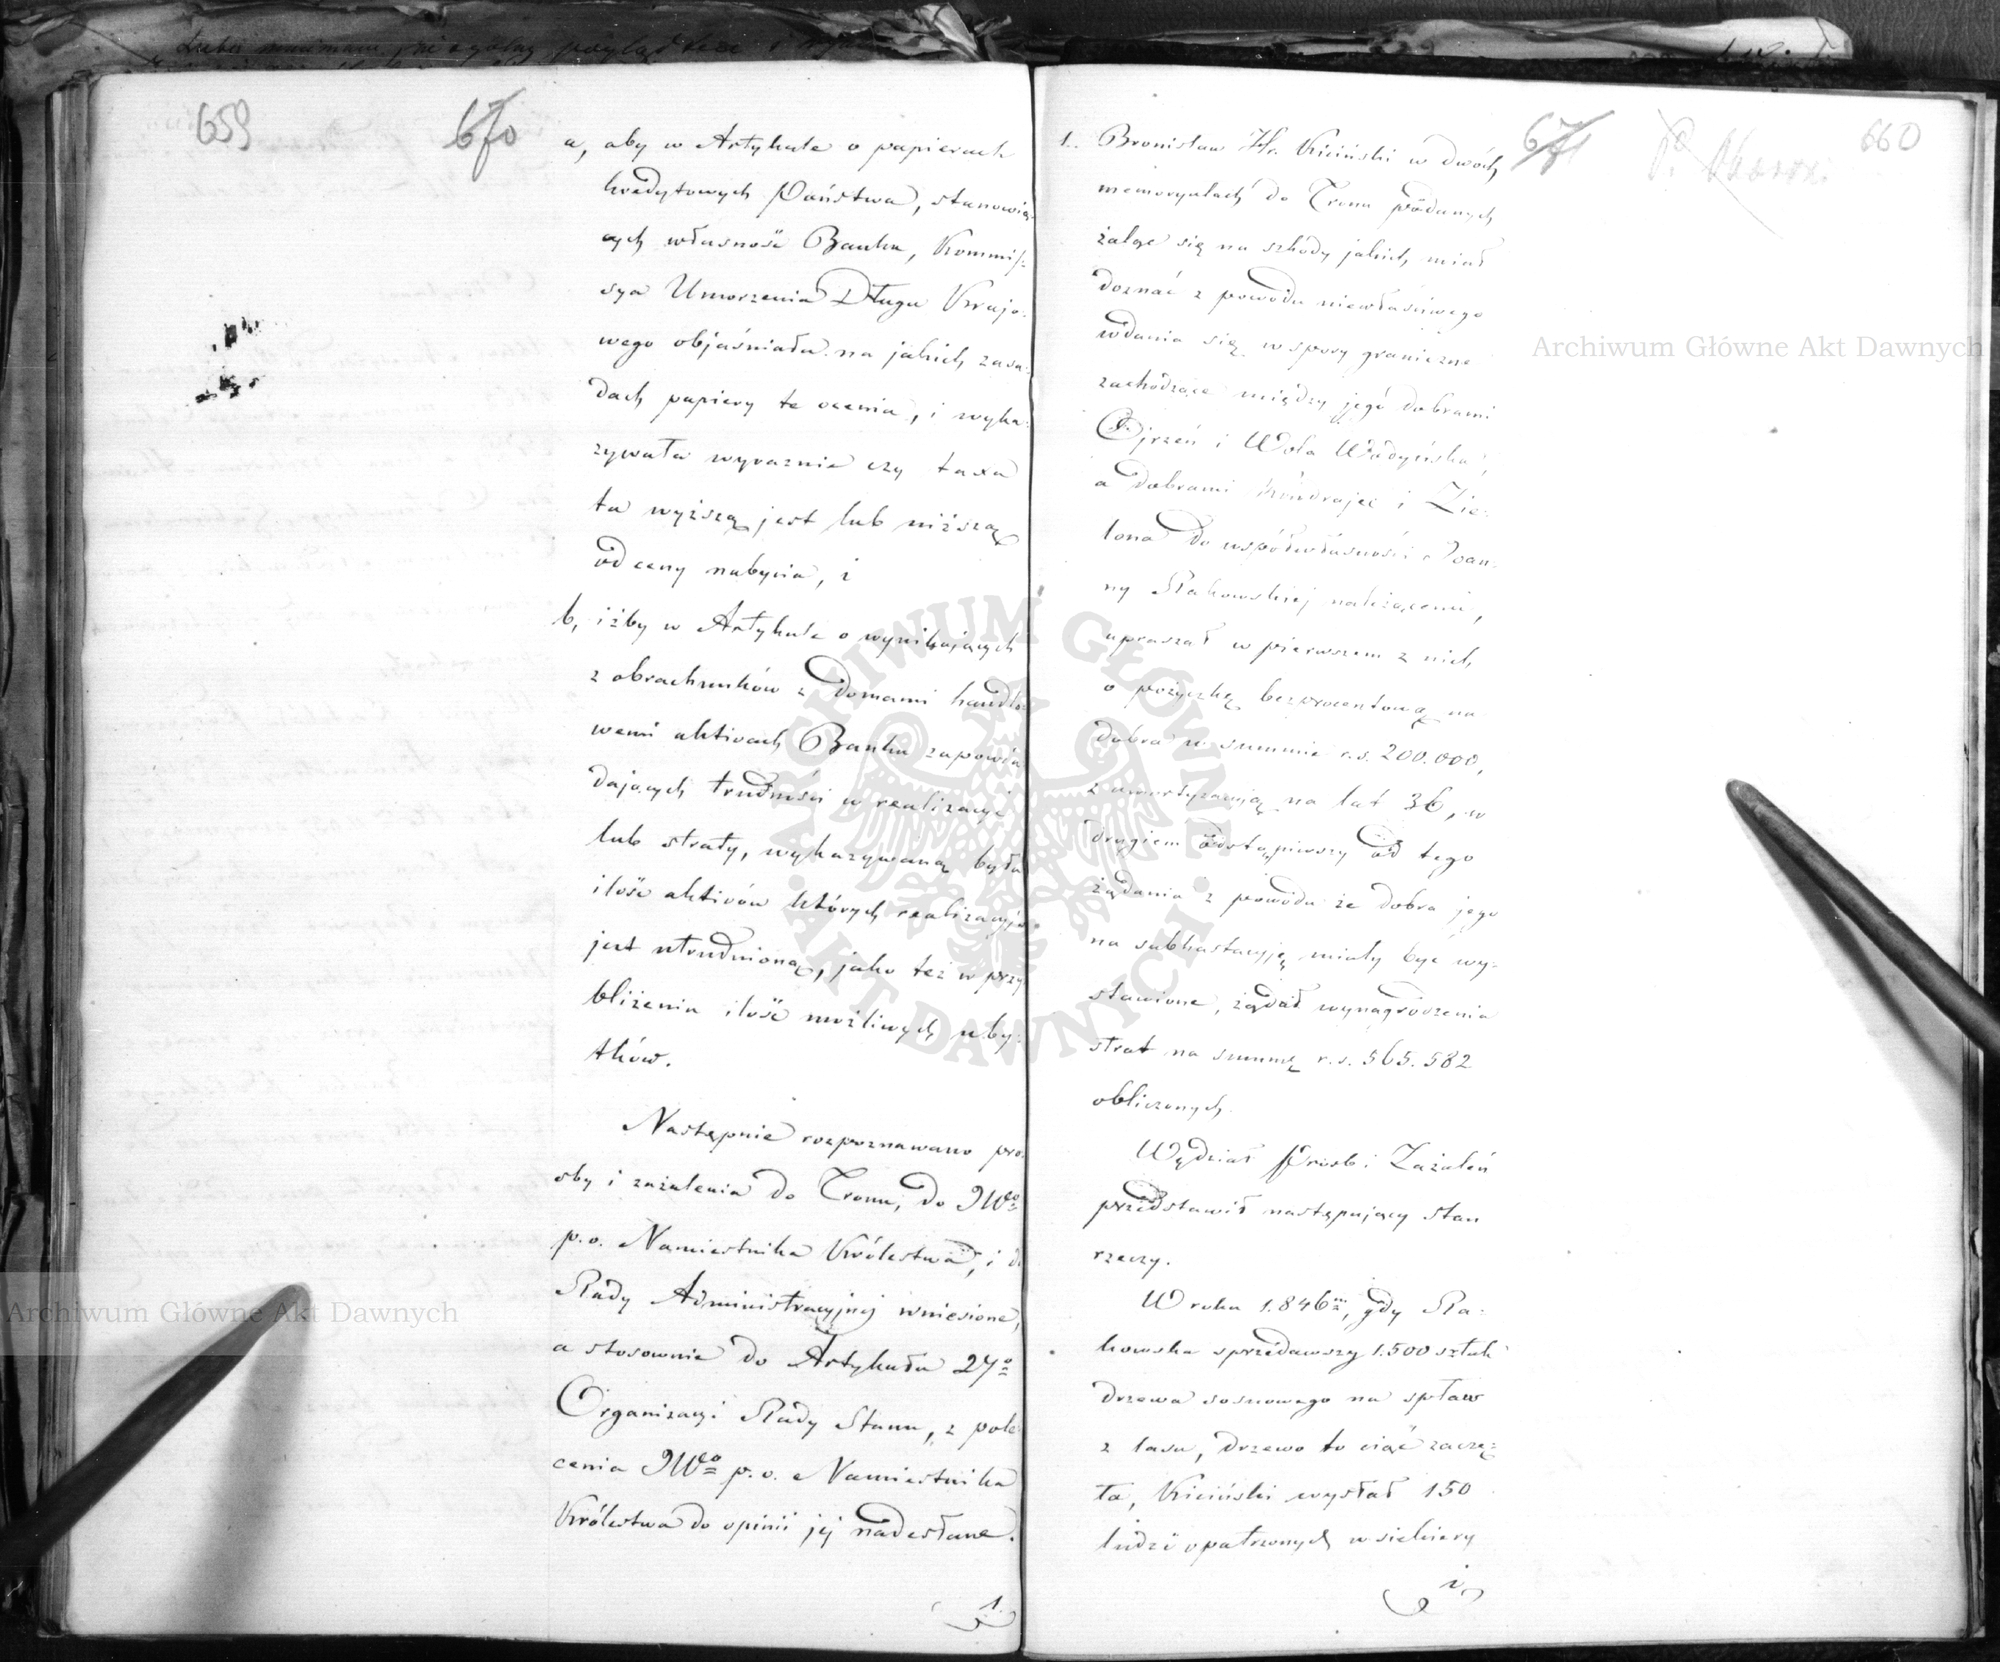 659
670
a, aby w Artykule o papierach
kredytowych Państwa, stanowią-
cych własność Banku, Kommis-
sya Umorzenia Długu Krajo-
wego objaśniała na jakich zasa-
dach papiery te ocenia, i wyka-
zywała wyraznie czy taxa
ta wyższą jest lub niższą
od ceny nabycia, i
b, iżby w Artykule o wynikających
z obrachunków z Domami handlo-
wemi aktivach Banku zapowia-
dających trudności w realizacyi
lub straty, wykazywaną była
ilość aktivów których realizacyja
jest utrudnioną, jako też w przy-
bliżenia ilość możliwych uby-
tków.
Następnie rozpoznawano pro-
śby i zażalenia do Tronu, do JWgo
p.o. Namiestnika Królestwa, i do
Rady Administracyjnej wniesione,
a stosownie do Artykułu 27o
Organizacyi Rady Stanu, z pole-
cenia JWgo p.o. Namiestnika
Królestwa do opinii jej nadesłane.
1.
671
660
1. Bronisław Hr. Kiciński w dwóch
memoryałach do Tronu podanych
żaląc się na szkody jakich miał
doznać z powodu niewłaściwego
wdania się w spory graniczne
zachodzące między jego dobrami
Ojrzeń i Wola Wodzyńska,
a dobrami Kondrajec i Zie-
lona do współwłasności Joan-
ny Rakowskiej należącemi,
upraszał w pierwszem z nich
o pożyczkę bezprocentową na
dobra w summie r.s. 200.000,
z amortyzacyją na lat 36, w
drugiem odstąpiwszy od tego
żądania z powodu że dobra jego
na subhastacyję miały być wy-
stawione, żądał wynagrodzenia
strat na summę r.s. 565.582
obliczonych.
Wydział Próśb i Zażaleń
przedstawił następujący stan
rzeczy.
W roku 1846m, gdy Ra-
kowska sprzedawszy 1.500 sztuk
drzewa sosnowego na spław
z lasu, drzewo to ciąć zaczę-
ła, Kiciński wysłał 150
ludzi opatrzonych w siekiery
i
Archiwum Główne Akt Dawnych
Archiwum Główne Akt Dawnych
ARCHIWUM GŁÓWNE
AKT DAWNYCH